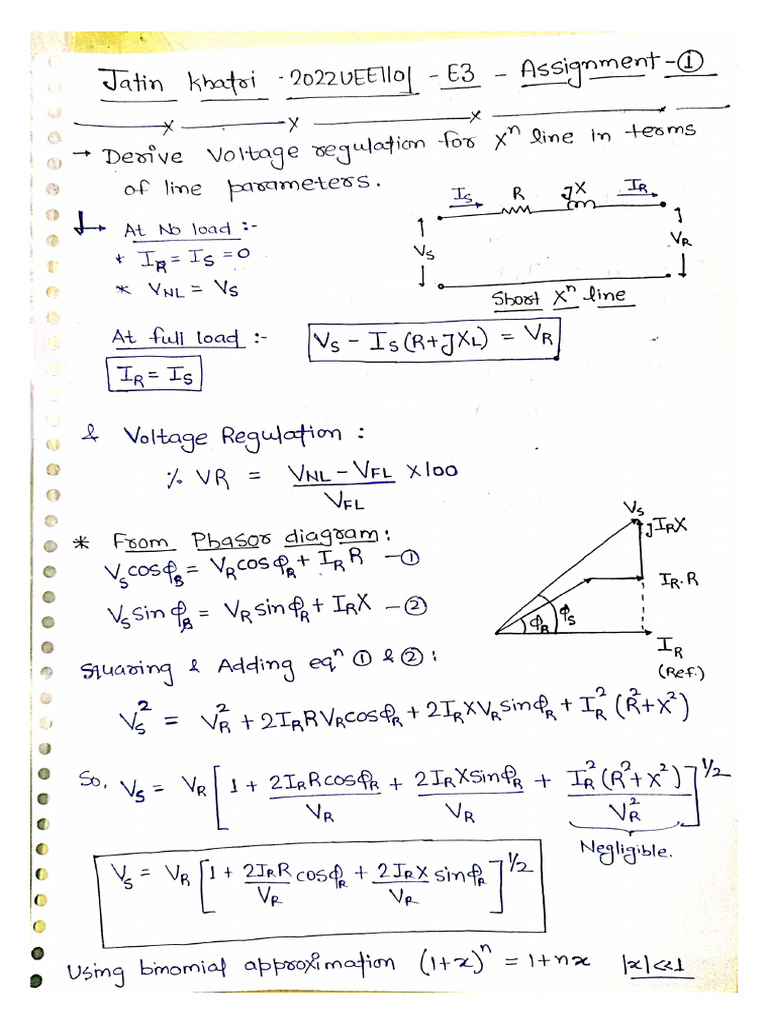 Jatin Khatri - 2022UEE1101 - E3 - Assignment - ①
→ Derive Voltage regulation for Xⁿ line in terms
of line parameters.
I_S R JX I_R
V_S V_R
Short Xⁿ line
At No load :-
* I_R = I_S = 0
* V_NL = V_S
At full load :- V_S - I_S (R + JX_L) = V_R
I_R = I_S
& Voltage Regulation :
% VR = (V_NL - V_FL)/V_FL × 100
* From Phasor diagram :
V_S cosφ_S = V_R cosφ_R + I_R R — ①
V_S sinφ_S = V_R sinφ_R + I_R X — ②
V_S
jI_R X
I_R . R
φ_R φ_S
I_R
(Ref.)
Squaring & Adding eqⁿ ① & ② :
V_S² = V_R² + 2I_R R V_R cosφ_R + 2I_R X V_R sinφ_R + I_R² (R² + X²)
So, V_S = V_R [1 + 2I_R R cosφ_R/V_R + 2I_R X sinφ_R/V_R + I_R² (R² + X²)/V_R²]^1/2
Negligible.
V_S = V_R [1 + 2I_R R/V_R cosφ_R + 2I_R X/V_R sinφ_R]^1/2
Using binomial approximation (1+x)ⁿ = 1+nx |x|<<1